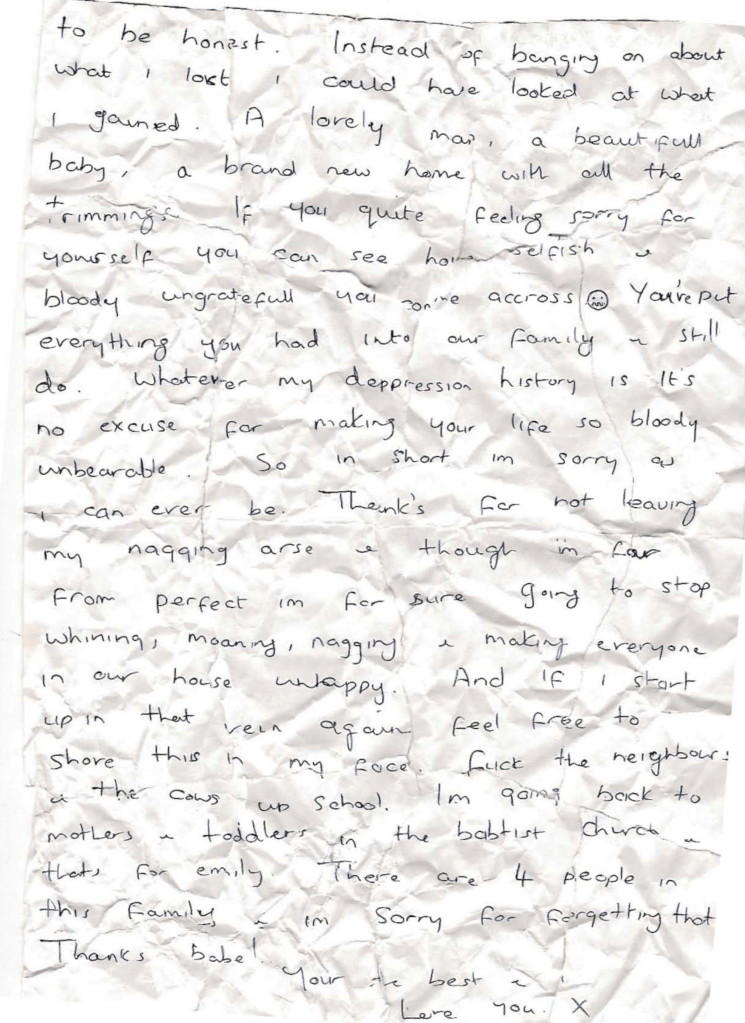 to be honest. Instead of banging on about
what i lost i could have looked at what
i gained. A lovely man, a beautifull
baby, a brand new home with all the
trimmings. If you quite feeling sorry for
yourself you can see how selfish &
bloody ungratefull you come accross ☹ You've put
everything you had into our family & still
do. Whatever my deppression history is It's
no excuse for making your life so bloody
unbearable. So in short im sorry as
i can ever be. Thank's for not leaving
my nagging arse & though im far
from perfect im for sure going to stop
whining, moaning, nagging & making everyone
in our house unhappy. And if i start
up in that vein again feel free to
shove this in my face. Fuck the neighbours
& the cows up school. Im going back to
mothers & toddlers in the babtist church &
thats for emily. There are 4 people in
this family & im sorry for forgetting that
Thanks babe!
Your the best & i
Love you. X